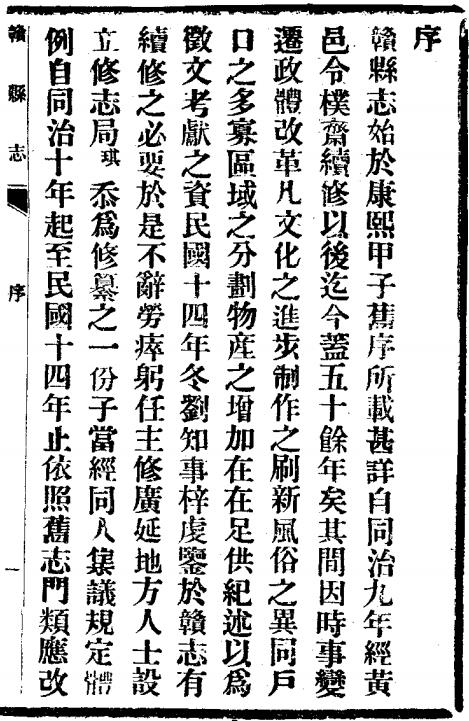 序
贛縣志始於康熙甲子舊序所載甚詳自同治九年經黃
邑令樸齋續修以後迄今蓋五十餘年矣其間因時事變
遷政體改革凡文化之進步制作之刷新風俗之異同戶
口之多寡區域之分劃物産之增加在在足供紀述以爲
徵文考獻之資民國十四年冬劉知事梓虔鑒於贛志有
續修之必要於是不辭勞瘁躬任主修廣延地方人士設
立修志局琪忝爲修纂之一份子當經同人集議規定體
例自同治十年起至民國十四年止依照舊志門類應改
贛縣志 序 一